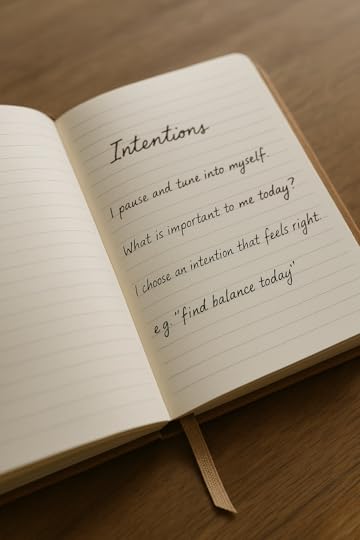 Intentions
I pause and tune into myself.
What is important to me today?
I choose an intention that feels right.
e.g. "find balance today"